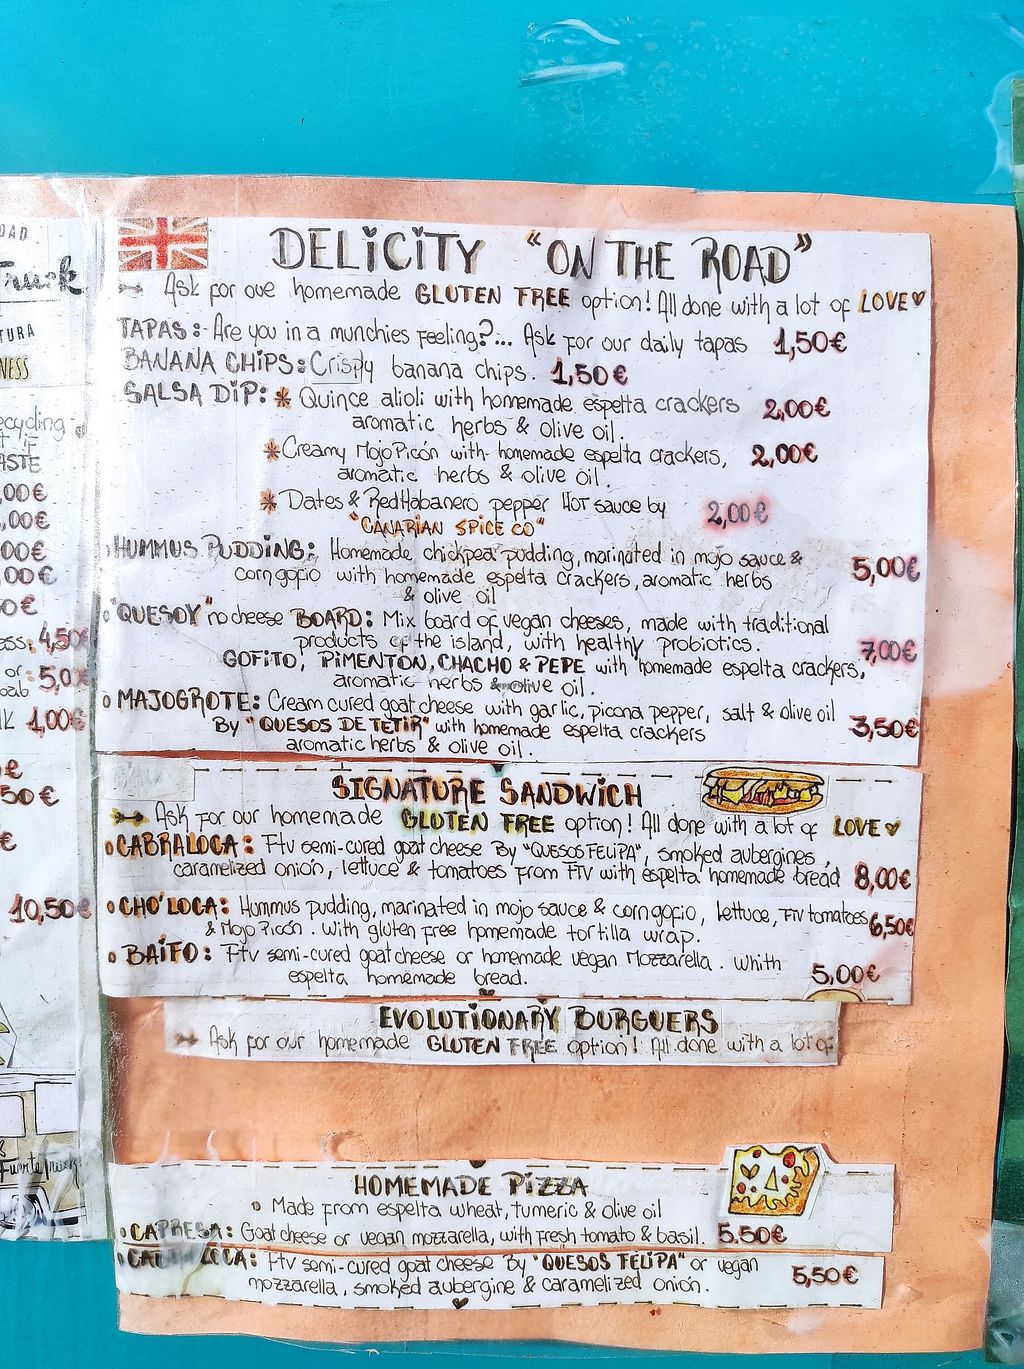 DELiCiTY "ON THE ROAD"
Ask for oue homemade GLUTEN FREE option! All done with a lot of LOVE
TAPAS: Are you in a munchies feeling?... Ask for our daily tapas 1,50€
BANANA CHiPS: Crispy banana chips. 1,50€
SALSA DiP: * Quince alioli with homemade espelta crackers 2,00€
aromatic herbs & olive oil.
* Creamy Mojo Picón with homemade espelta crackers, 2,00€
aromatic herbs & olive oil.
* Dates & Red Habanero pepper Hot sauce by 2,00€
"CANARiAN SPiCE CO"
HUMMUS PUDDiNG: Homemade chickpea pudding, marinated in mojo sauce & 5,00€
corn gofio with homemade espelta crackers, aromatic herbs
& olive oil
"QUESOY" no cheese BOARD: Mix board of vegan cheeses, made with traditional
products of the island, with healthy probiotics. 7,00€
GOFiTO, PiMENTON, CHACHO & PEPE with homemade espelta crackers,
aromatic herbs & olive oil.
MAJOGROTE: Cream cured goat cheese with garlic, picona pepper, salt & olive oil 3,50€
By "QUESOS DE TETiR" with homemade espelta crackers
aromatic herbs & olive oil.
SiGNATURE SANDWiCH
Ask for our homemade GLUTEN FREE option! All done with a lot of LOVE
CABRALOCA: Ftv semi-cured goat cheese By "QUESOS FELiPA", smoked aubergines,
caramelized onion, lettuce & tomatoes from FTV with espelta homemade bread 8,00€
CHO'LOCA: Hummus pudding, marinated in mojo sauce & corn gofio, lettuce, FTV tomatoes 6,50€
& Mojo Picón. with gluten free homemade tortilla wrap.
BAiFO: Ftv semi-cured goat cheese or homemade vegan Mozzarella. Whith 5,00€
espelta homemade bread.
EVOLUTiONARY BURGUERS
Ask for our homemade GLUTEN FREE option! All done with a lot of
HOMEMADE PiZZA
Made from espelta wheat, tumeric & olive oil
CAPRESA: Goat cheese or vegan mozzarella, with fresh tomato & basil. 5.50€
LOCA: Ftv semi-cured goat cheese By "QUESOS FELiPA" or vegan 5,50€
mozzarella, smoked aubergine & caramelized onion.
Truck
TURA
NESS
ecycling
iF
ASTE
,00€
,00€
00€
,00€
0€
4,50€
or: 5,0
1,00€
€
50€
€
10,50€